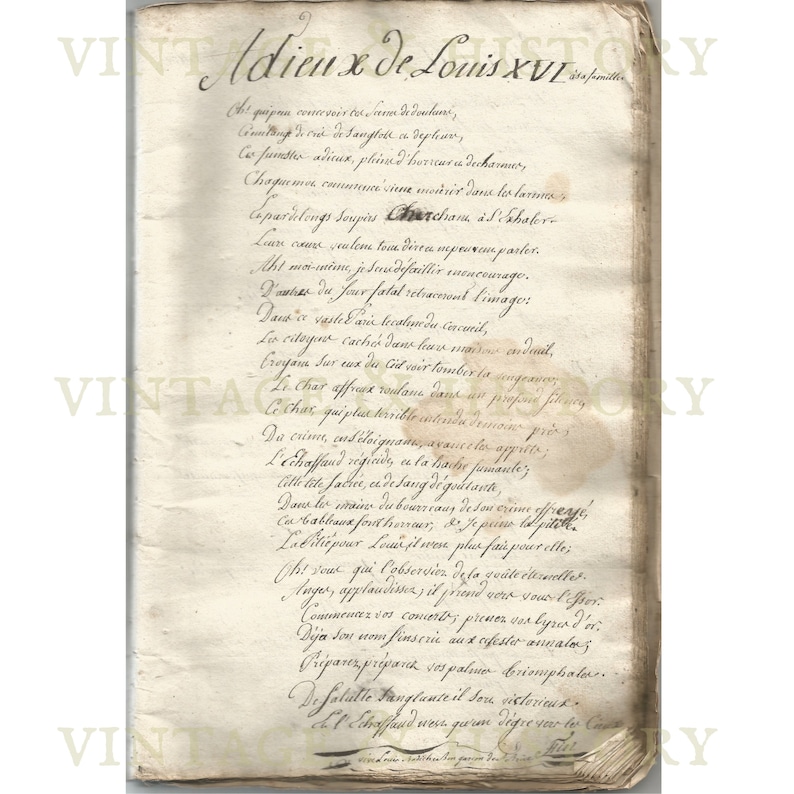 VINTAGE & HISTORY
Adieux de Louis XVI à sa famille
Oh! qui peu concevoir ces scenes de douleurs,
Ce mélange de cris de sanglots et de pleurs,
Ces funestes adieux, pleins d'horreur et de charmes,
Chaque mot commencé vient mourir dans les larmes;
Et par de longs soupirs Cherchant à s'Exhaler
Leurs cœurs veulent tout dire et ne peuvent parler.
Ah! moi-même, je sens défaillir mon courage.
D'autres du jour fatal retraceront l'image:
Dans ce vaste Paris le calme du cercueil,
Les citoyens cachés dans leurs maisons en deuil,
Croyant sur eux du Ciel voir tomber la vengeance,
Le char affreux roulant dans un profond silence,
Ce char, qui plus terrible entendu de moins près;
Du crime, en s'éloignant, avance les apprêts;
L'Echaffaud régicide, et la hache fumante;
Cette tête sacrée, et de sang dégoutante,
Dans les mains du bourreau, de son crime effrayé,
Ces tableaux font horreur, & je peins la pitié
La Pitié pour Louis il n'est plus fait pour elle;
Oh! vous qui l'observiez de la voûte éternelle
Anges, applaudissez; il prend vers vous l'Essor
Commencez vos concerts; prenez vos lyres d'or.
Déja son nom s'inscrit aux celestes annales;
Préparez, préparez vos palmes triomphales
De sa lutte sanglante il sort victorieux
Et l'Echaffaud n'est qu'un dégré vers les Cieux
VINTAGE & HISTORY
VINTAGE & HISTORY